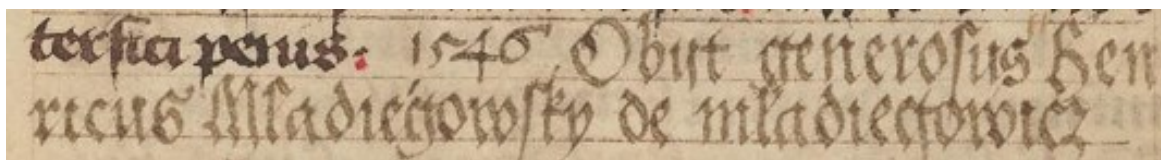 tersici penus: 1546 Obijt generosus Hen
ricus Mladiegowsky de mladiegowicz